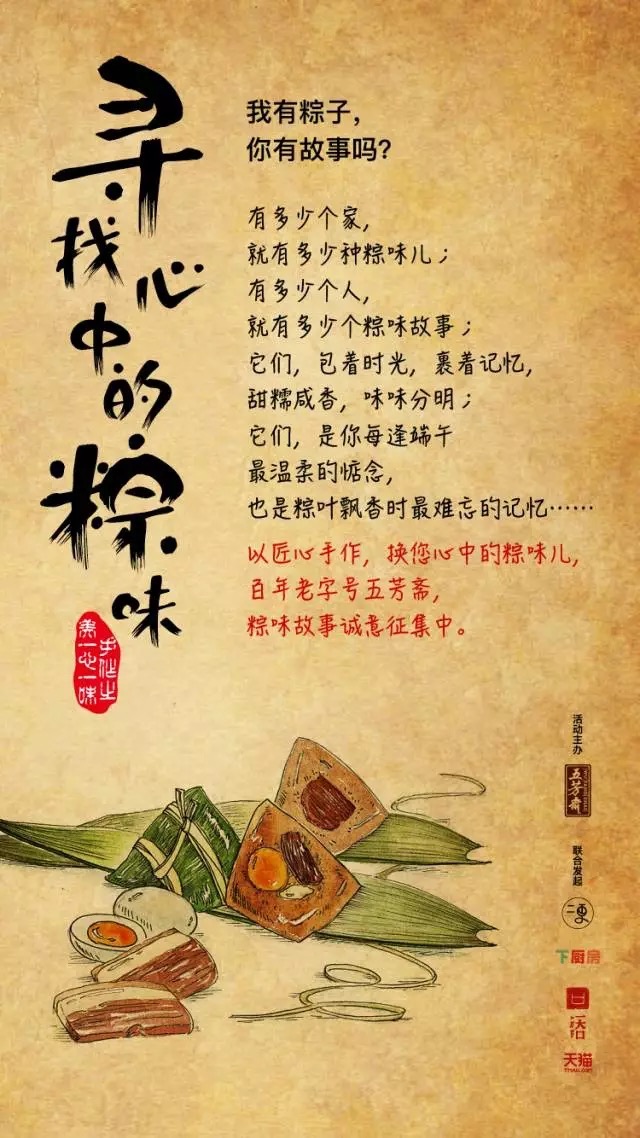 寻找心中的粽味
手作之
美一心一味
我有粽子，
你有故事吗？
有多少个家，
就有多少种粽味儿；
有多少个人，
就有多少个粽味故事；
它们，包着时光，裹着记忆，
甜糯咸香，味味分明；
它们，是你每逢端午
最温柔的惦念，
也是粽叶飘香时最难忘的记忆……
以匠心手作，换您心中的粽味儿，
百年老字号五芳斋，
粽味故事诚意征集中。
活动主办
五芳齋
联合发起
二更
下厨房
天猫
TMALL.COM